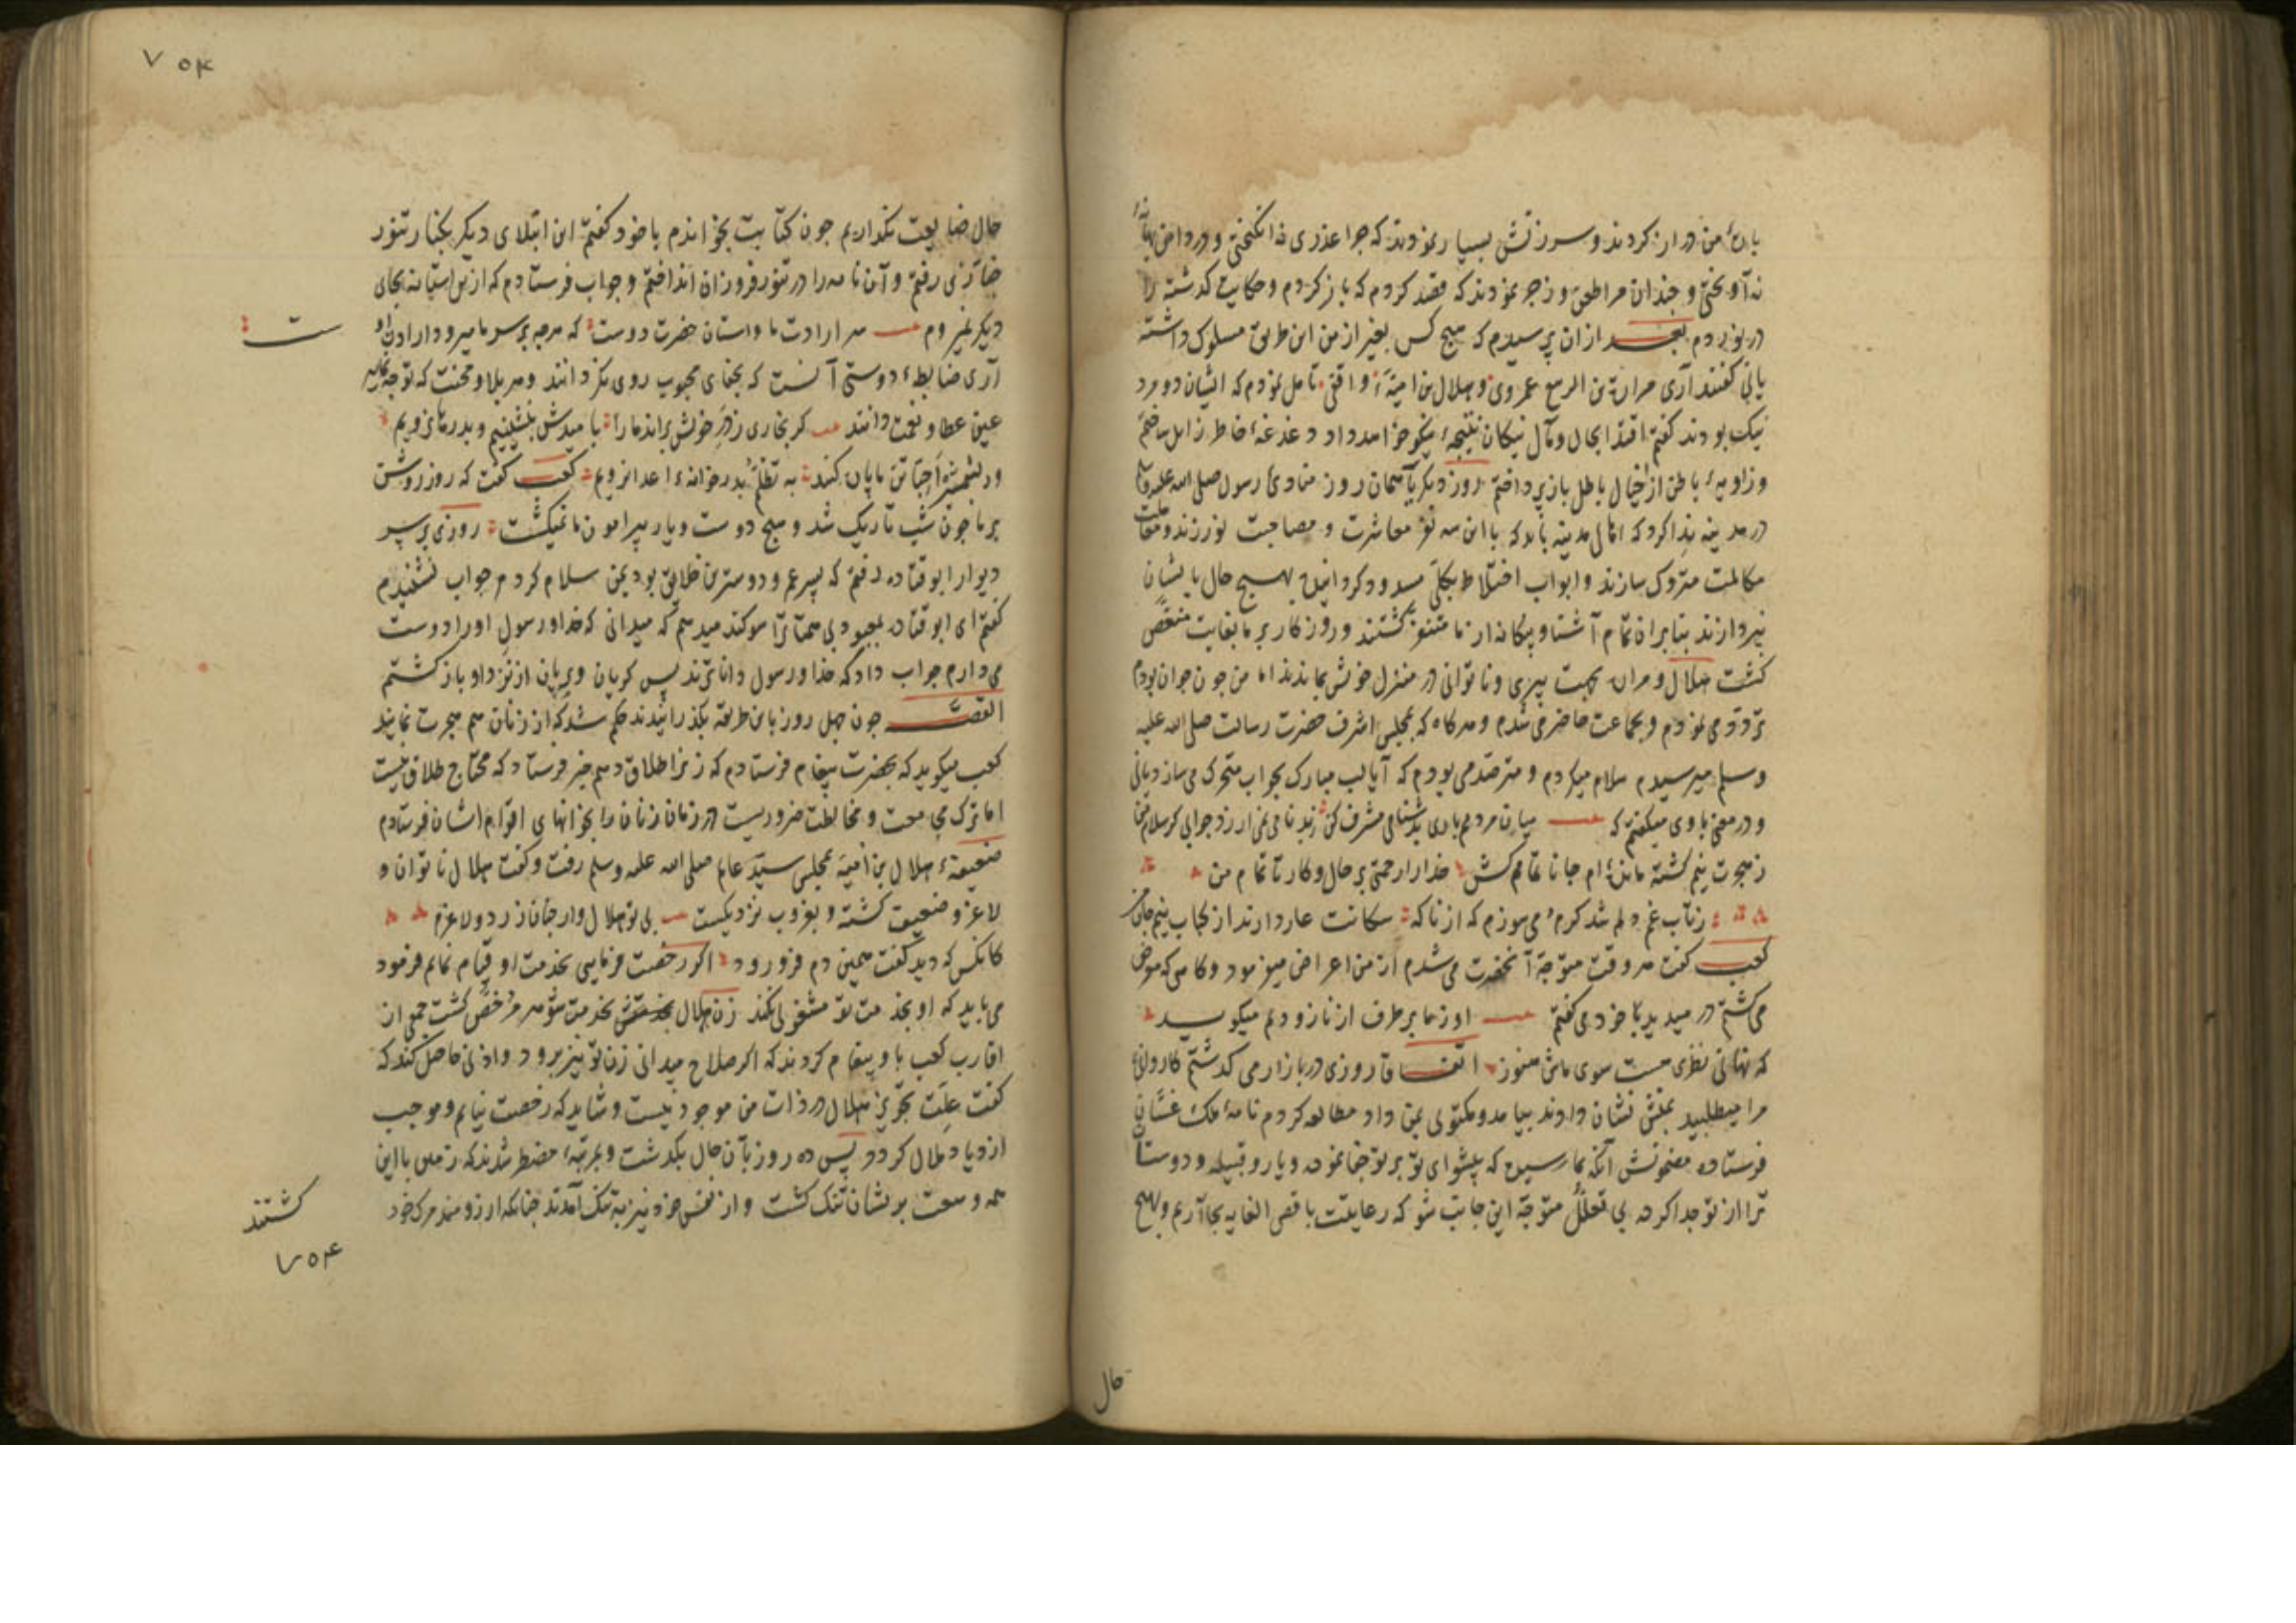 باره من دراز کردند و سرزنش بسیار نمودند که چرا عذری نه انگیختی و در دامن بهانهٔ
نه آویختی و چندان مرا طعن و زجر نمودند که قصد کردم که باز کردم و حکایت کذشته را
در نوردم بعد ازان پرسیدم که هیچ کس بغیر از من این طریق مسلوک داشته
یانی گفتند آری مرارة بن الربیع عمروی و هلال بن امیة واقفی تامل نمودم که ایشان دو مرد
نیک بودند گفتم اقتدا بحال و مآل نیکان نتیجهٔ نیکو خواهد داد دغدغهٔ خاطر زایل ساختم
و زاویهٔ باطن از خیال باطل باز پرداختم روز دیکر یا همان روز منادیٔ رسول صلی الله علیه و سلم
در مدینه ندا کرد که اهالی مدینه باید که با این سه نفر معاشرت و مصاحبت نورزند و
مکالمت متروک سازند و ابواب اختلاط بکلی مسدود کردانیده بهیچ حال بایشان
نپردازند بنابران تمام آشنا و بیکانه از ما متنفر کشتند و روزکار بر ما بغایت منغص
کشت هلال و مراره بجهت پیری و ناتوانی در منزل خویش بماندند اما من چون جوان بودم
تردد می نمودم و بجماعت حاضر می شدم و هرکاه که بمجلس اشرف حضرت رسالت صلی الله علیه
و سلم میرسیدم سلام میکردم و مترصد می بودم که آیا لب مبارک بجواب متحرک می سازد یانی
و در معنی باوی میکفتم که میان مردمم باری بدشنامی مشرف کن
ز هجرت نیم کشته مانده ام جانا تمامم کش خدا را رحمتی بر حال و کار ناتمام من
ز تاب غم دلم شد کرم می سوزم که از ناکه سکانت عار دارند از کباب نیم خام من
کعب کفت هر وقت متوجه آنحضرت می شدم از من اعراض میفرمود و کاهی که معرض
می کشتم در میدید با خود می گفتم او ز ما بر طرف از ناز و دلم میکوید
که نهانی نظری هست سوی ماش هنوز اتفاقا روزی در بازار می کذشتم کاروانیٔ
مرا میطلبید بمنش نشان دادند بیامد و مکتوبی بمن داد مطالعه کردم نامهٔ ملک غسان
فرستاده مضمونش آنکه بما رسیده که پیشوای تو بر تو جفا نموده و یار و قبیله و دوستان
ترا از تو جدا کرده بی تعلل متوجه این جانب شو که رعایتت باقصی الغایه بجا آریم و بهیچ
حال
۷۵۴
حال ضایعت نکذاریم چون کتابت بخواندم با خود کفتم این ابتلای دیکر بکنار تنور
خبازی رفتم و آن نامه را در تنور فروزان انداختم و جواب فرستادم که ازین آستانه بجای
دیکر نمیروم سر ارادت ما و آستان حضرت دوست که هرچه بر سر ما میرود ارادت او
ست
آری ضابطهٔ دوستی آنست که بجفای محبوب روی نکردانند و هر بلا و محنت که توجه نماید
عین عطا و نعمت دانند کر بخاری ز در خویش براند ما را با میدش بنشینیم و بدر نروریم
ور بشمشیر اجبا تن ما پاره کند به تظلم بدر خانهٔ اعدا نرویم کعب کفت که روز روشن
بر ما چون شب تاریک شد و هیچ دوست و یار پیرامون ما نمیکشت روزی بر سر
دیوار ابو قتاده رفتم که پسر عم و دوسترین خلایق بود بمن سلام کردم جواب نشنیدم
کفتم ای ابو قتاده بمعبود بی همتا ترا سوکند میدهم که میدانی که خدا و رسول او را دوست
می دارم جواب داد که خدا و رسول داناترند پس کریان و بریان از نزد او باز کشتم
القصه چون چهل روز باین طریقه بکذرانیدند حکم شد که از زنان هم هجرت نمایند
کعب میکوید که بحضرت پیغام فرستادم که زن را طلاق دهم خبر فرستاد که محتاج طلاق نیست
اما ترک صحبت و مخالطت ضروریست در زمان زنان را بخانهای اقوام ایشان فرستادم
ضعیفهٔ هلال بن امیة بمجلس سید عالم صلی الله علیه وسلم رفت و کفت هلال ناتوان و
لاغر و ضعیف کشته و بغروب نزدیکست بی تو هلال وار چنان زرد و لاغرم
کانکس که دید گفت همین دم فرو رود اکر رخصت فرمایی بخدمت او قیام نمایم فرمود
می باید که او بخدمت تو مشغولی نکند زن هلال بخدمت شوهر مرخص کشت جمعی از
اقارب کعب باو پیغام کردند که اکر صلاح میدانی زن تو نیز برود و اذنی حاصل کند که
کفت علت تجویز هلال در ذات من موجود نیست و شاید که رخصت نیابم و موجب
ازدیاد ملال کردد پس ده روز بآن حال بکذشت و بمرتبهٔ مضطر شدند که زمین با این
همه وسعت بر ایشان تنک کشت و از نفس خود نیز به تنک آمدند چنانکه آرزومند مرک خود
کشتند
۷۵۴